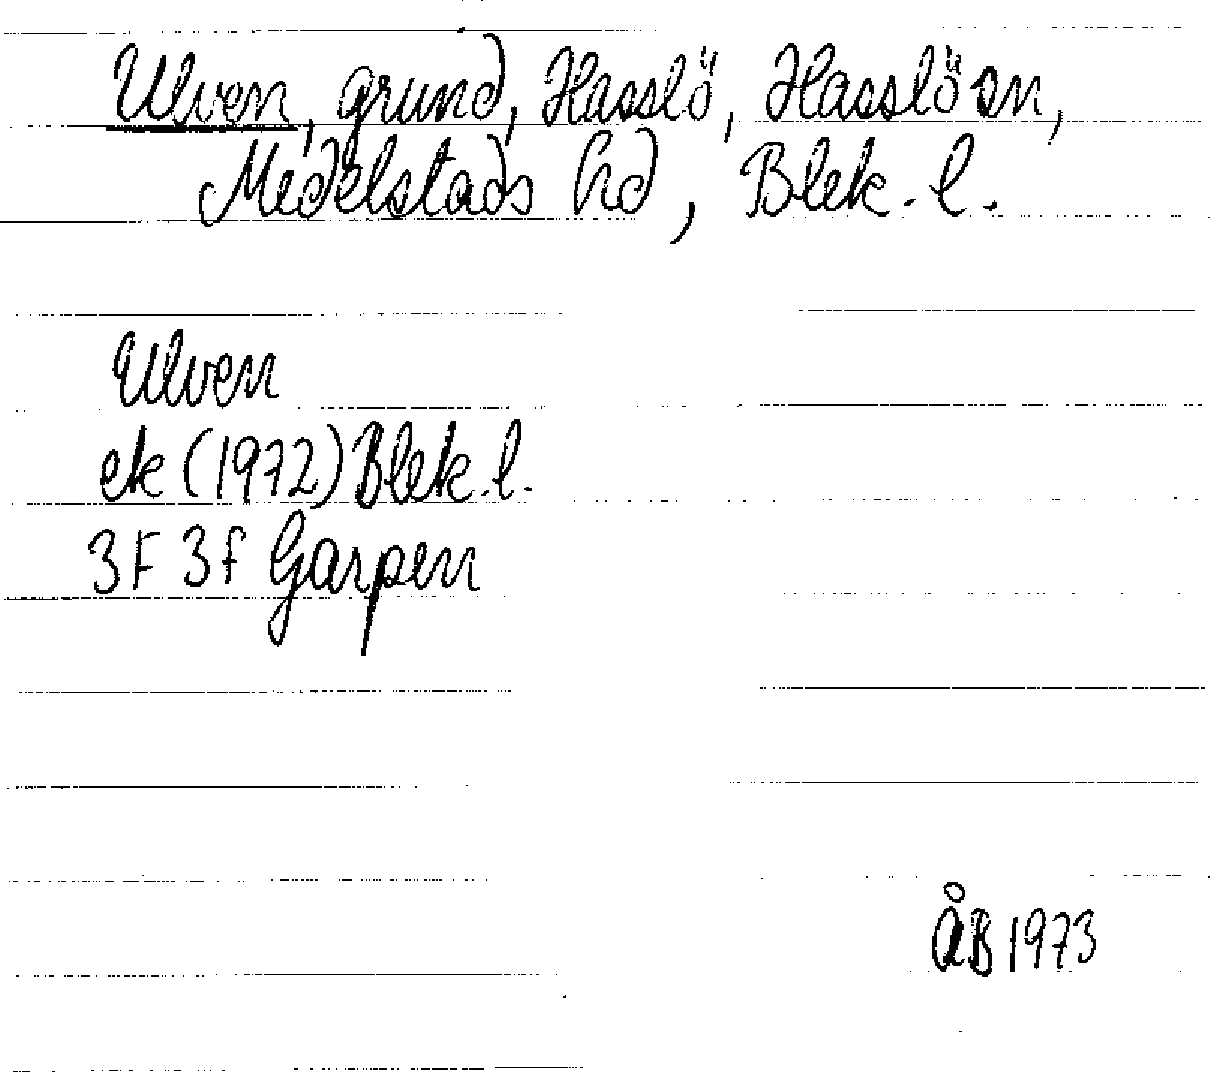 Ulven, grund, Hasslö, Hasslö sn,
Medelstads hd, Blek. l.
Ulven
ek (1972) Blek. l.
3F 3f Garpen
ÅB 1973